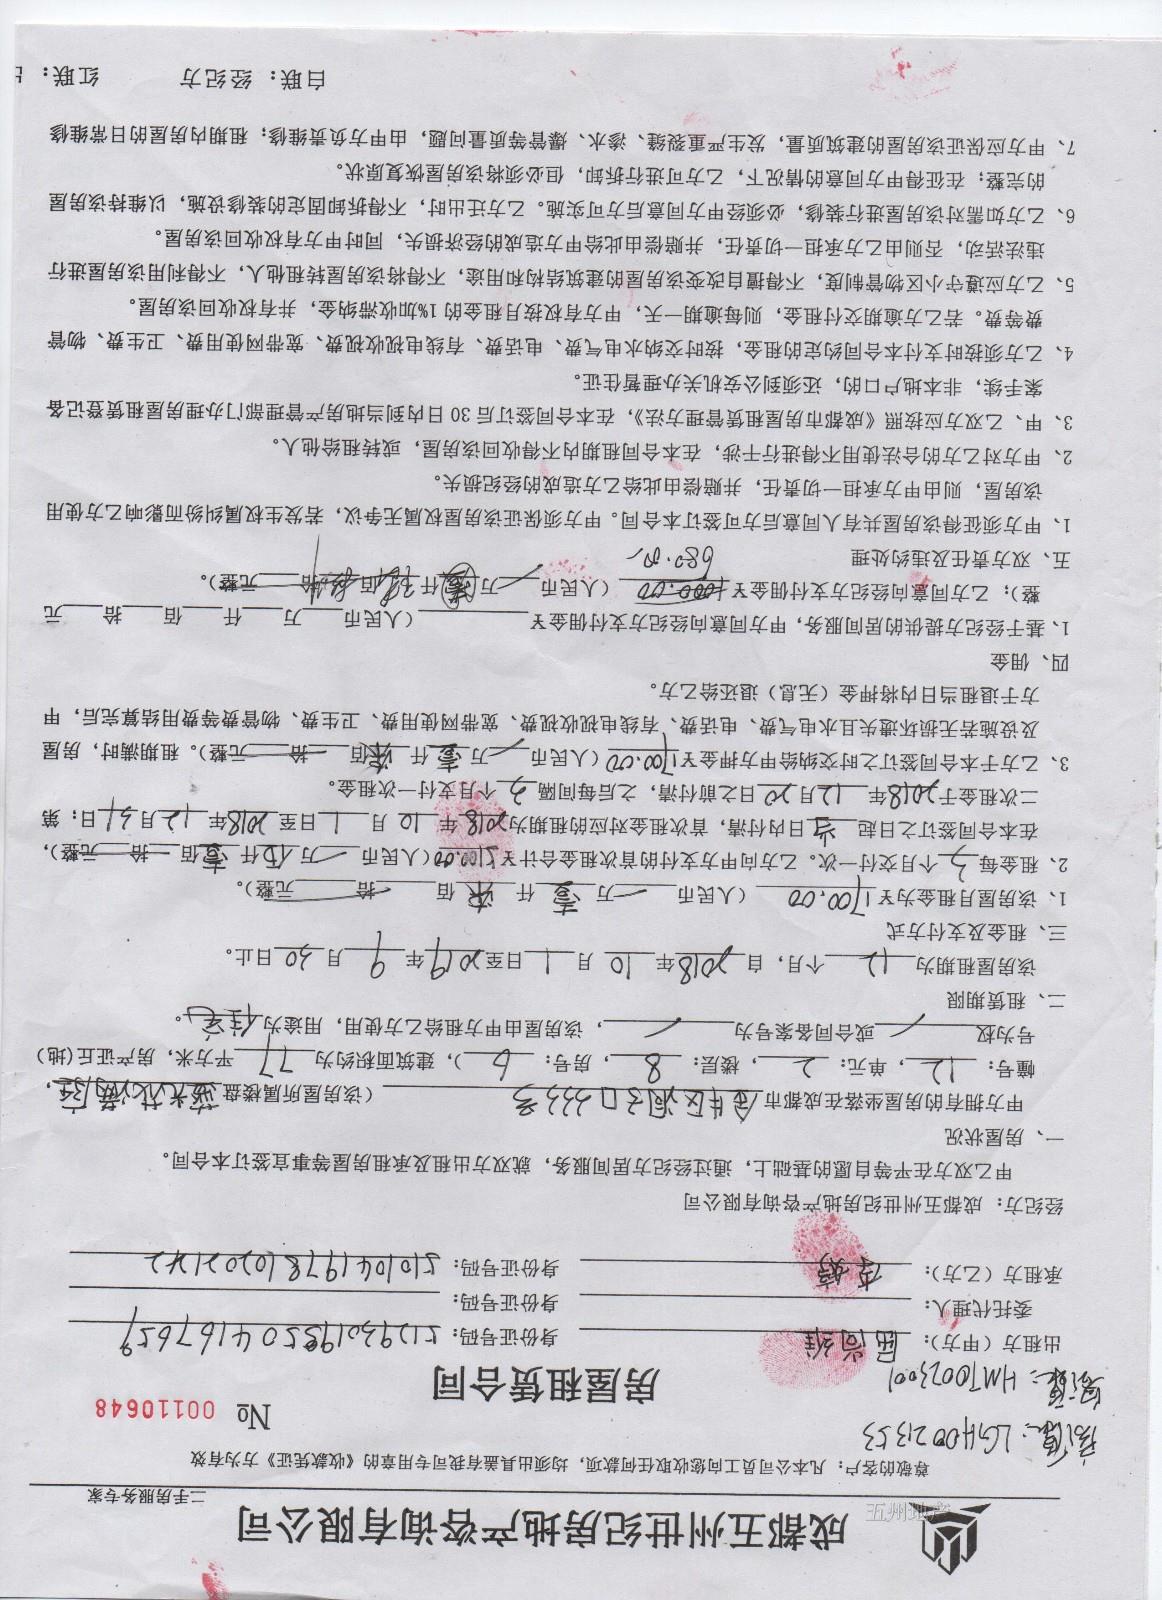 成都五州世纪房地产咨询有限公司
五州地产
二手房服务专家
尊敬的客户：凡本公司员工向您收取任何款项，均须出具盖有我司专用章的《收款凭证》方为有效
房源：LGH00021353
№ 00110648
客源：HMT0023001
房屋租赁合同
出租方（甲方）：屈尚维 身份证号码：512930195504167659
委托代理人： 身份证号码：
承租方（乙方）：李婷 身份证号码：510104197810202142
经纪方：成都五州世纪房地产咨询有限公司
甲乙双方在平等自愿的基础上，通过经纪方居间服务，就双方出租及承租房屋等事宜签订本合同。
一、房屋状况
甲方拥有的房屋坐落在成都市金牛区洞子口333号（该房屋所属楼盘蓝光花满庭，
幢号：12，单元：2，楼层：8，房号：6），建筑面积约为77平方米，房产证丘(地)
号为权／或合同备案号为／，该房屋由甲方租给乙方使用，用途为住宅。
二、租赁期限
该房屋租期为12个月，自2018年10月1日至2019年9月30日止。
三、租金及支付方式
1、该房屋月租金为￥1700.00（人民币／万壹仟柒佰一拾一元整）。
2、租金每3个月交付一次。乙方向甲方支付的首次租金合计￥5100.00（人民币／万伍仟壹佰一拾一元整），
在本合同签订之日起当日内付清，首次租金对应的租期为2018年10月1日至2018年12月31日；第
二次租金于2018年12月20日之前付清，之后每间隔3个月支付一次租金。
3、乙方于本合同签订之时交纳给甲方押金￥1700.00（人民币／万壹仟柒佰一拾一元整）。租期满时，房屋
及设施若无损坏遗失且水电气费、电话费、有线电视收视费、宽带网使用费、卫生费、物管费等费用结算完后，甲
方于退租当日内将押金（无息）退还给乙方。
四、佣金
1、基于经纪方提供的居间服务，甲方同意向经纪方支付佣金￥（人民币 万 仟 佰 拾 元
整）；乙方同意向经纪方支付佣金￥1000.00（人民币／万壹仟 佰 拾 元整）。
680.00
五、双方责任及违约处理
1、甲方须征得该房屋共有人同意后方可签订本合同。甲方须保证该房屋权属无争议，若发生权属纠纷而影响乙方使用
该房屋，则由甲方承担一切责任，并赔偿由此给乙方造成的经纪损失。
2、甲方对乙方的合法使用不得进行干涉，在本合同租期内不得收回该房屋，或转租给他人。
3、甲、乙双方应按照《成都市房屋租赁管理方法》，在本合同签订后30日内到当地房产管理部门办理房屋租赁登记备
案手续，非本地户口的，还须到公安机关办理暂住证。
4、乙方须按时支付本合同约定的租金，按时交纳水电气费、电话费、有线电视收视费、宽带网使用费、卫生费、物管
费等费。若乙方逾期交付租金，则每逾期一天，甲方有权按月租金的1%加收滞纳金，并有权收回该房屋。
5、乙方应遵守小区物管制度，不得擅自改变该房屋的建筑结构和用途，不得将该房屋转租他人，不得利用该房屋进行
违法活动，否则由乙方承担一切责任，并赔偿由此给甲方造成的经济损失，同时甲方有权收回该房屋。
6、乙方如需对该房屋进行装修，必须经甲方同意后方可实施。乙方迁出时，不得拆卸固定的装修设施，以维持该房屋
的完整；在征得甲方同意的情况下，乙方可进行拆卸，但必须将该房屋恢复原状。
7、甲方应保证该房屋的建筑质量，发生严重裂缝、渗水、爆管等质量问题，由甲方负责维修；租期内房屋的日常维修
白联：经纪方 红联：